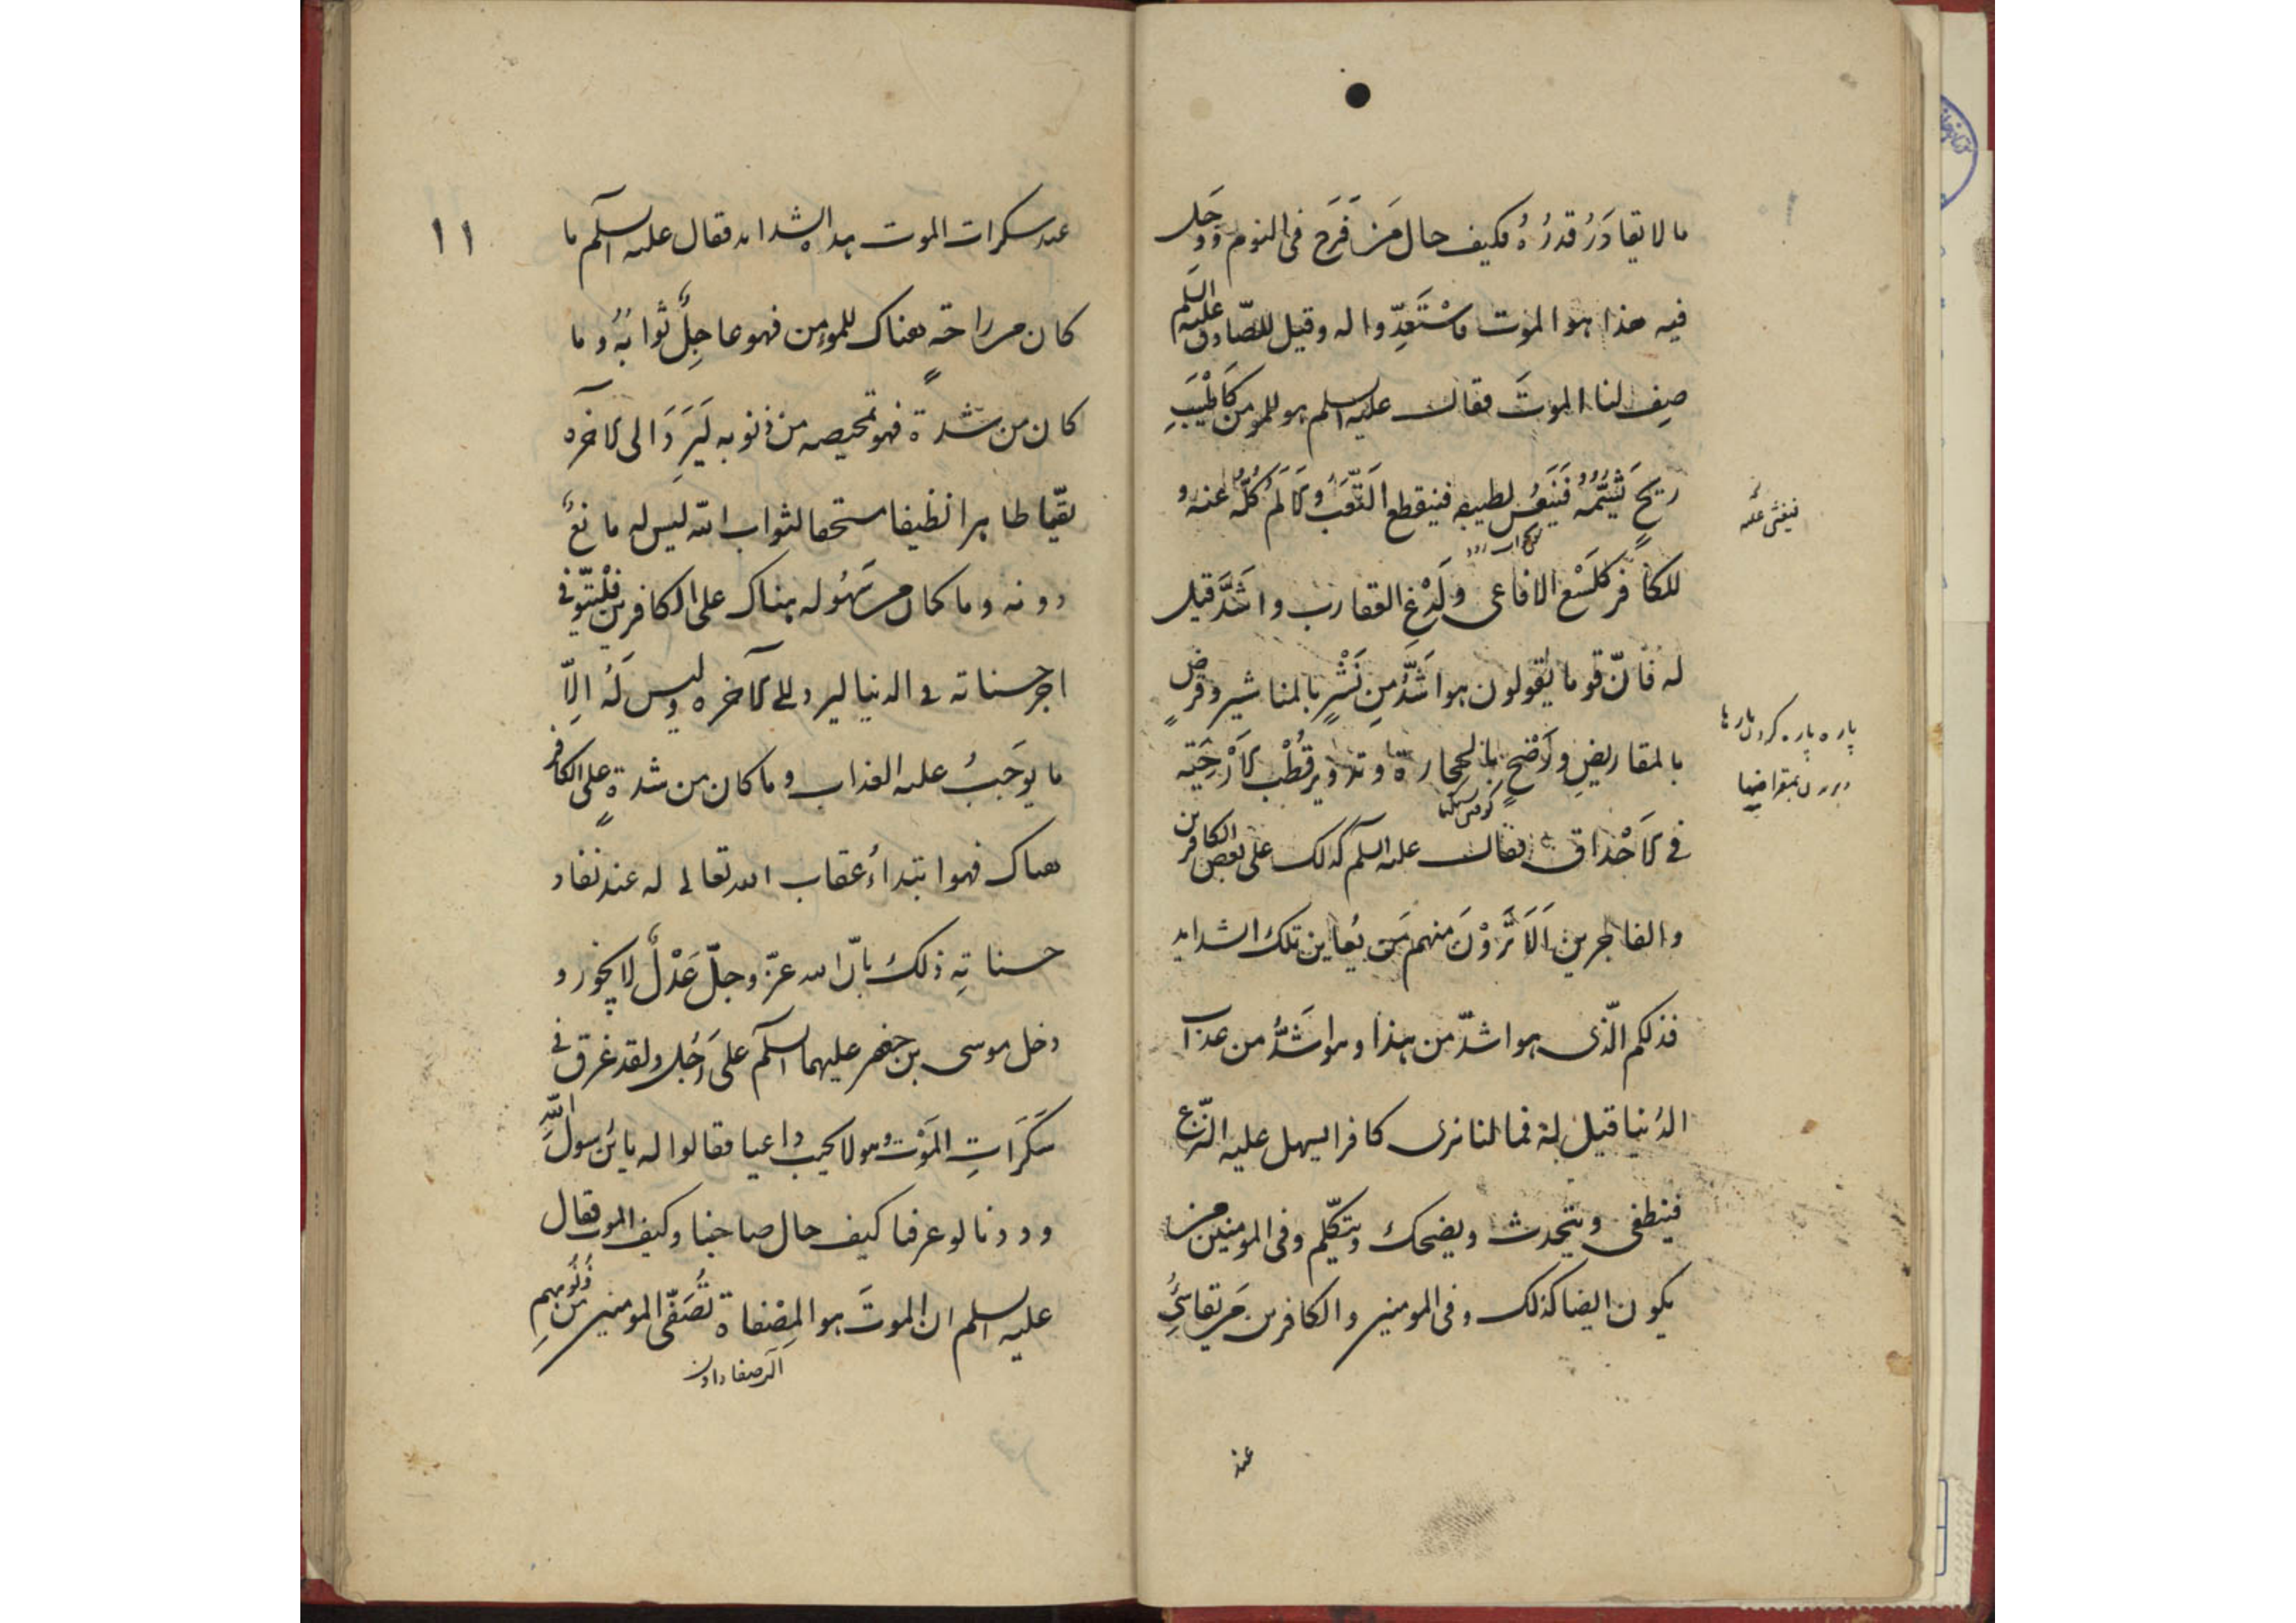 ما لا یقادَرُ قدرُهُ فکیف حال مَن فَرَح فی النوم وَوَجَل
فیه هذا هو الموت فاسْتَعِدّوا له وقیل للصّادق علیه السلم
صِف لنا الموتَ فقال علیه السلم هو للمومن کَاَطْیَبِ
ریحٍ یَشَمُّه فَیَنعُسُ لطیبه فینقطع التَّعَبُ وَالاَلَمُ کُلُّهُ عنه و
فیغشی علیه
للکافر کلَسْعِ الافاعی ولَدْغِ العقارب واشَدَّ قیل
له فانّ قوما یقولون هو اشَدُّ مِن نَشْرٍ بالمناشیر وقرضٍ
پاره پاره کردن بارها
بالمقاریضِ ورَضْحٍ بالحِجارة وتدویر قُطْب الاَرْحِیَة
بریدن بمقراضها
کوفتن سنگها
فی الاَحْداق فقال علیه السلم کذلک علی بعض الکافرین
والفاجرین اَلاَ تَرَوْنَ منهم مَن یُعاین تلک الشداید
فذلکم الّذی هو اشدّ من هذا وهو اشَدُّ من عذاب
الدُنیا قیل له فما لنا نری کافرا یسهل علیه النّزع
فینطفی ویتحدث ویضحک ویتکلّم وفی المومنین من
یکون ایضا کذلک وفی المومنین والکافرین مَن یقاسی
عند
۱۱
عند سکرات الموت هذه الشداید فقال علیه السلم ما
کان من راحةٍ هناک للمؤمن فهو عاجِلُ ثوابُهُ وما
کان من شدة فهو تمحیصه من ذنوبه لیَرِدَ الی الآخره
نقیّا طاهرا نظیفا مستحقا لثواب الله لیس له مانعٌ
دونه وما کان من سَهُولة هناک علی الکافرین فلْیُوَفّی
اجر حسناته فی الدنیا لیرد الی الآخره ولیس لَه اِلاّ
ما یوجَبُ علیه العذاب وما کان من شدةٍ علی الکافر
هناک فهو ابتداءُ عقاب الله تعالی له عند نفاد
حسناتِهِ ذلک بانّ الله عزّ وجلّ عَدْلٌ لا یجُور و
دخل موسی بن جعفر علیهما السلم علی رَجُل ولقد غرق فی
سَکَرَاتِ المَوْت وهو لا یجیب داعیا فقالوا له یابن رسول اللّهِ
وددنا لو عرفنا کیف حال صاحبنا وکیف الموت فقال
علیه السلم ان الموتَ هو المِصْفاة تُصَفّی المومنین من ذُنُوبهم